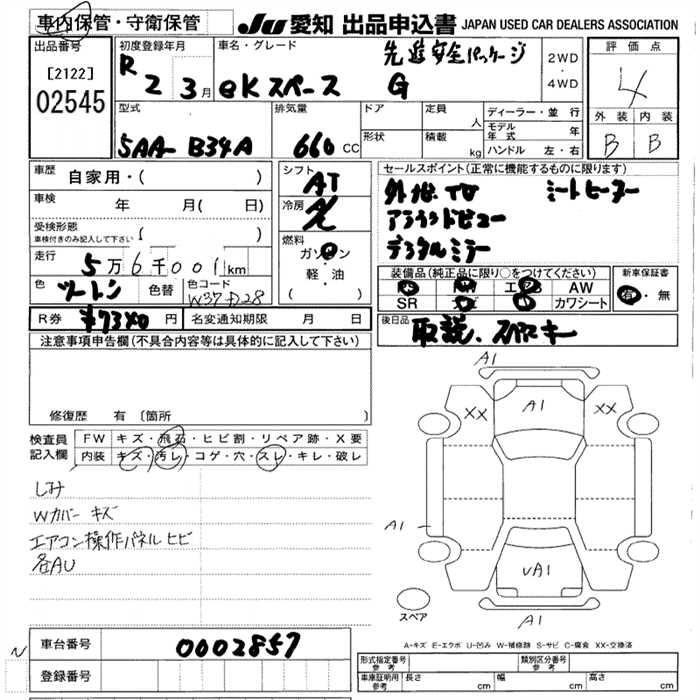 車内保管・守衛保管 JU 愛知 出品申込書 JAPAN USED CAR DEALERS ASSOCIATION
出品番号
[2122]
02545
初度登録年月
R 2 3月
車名・グレード
先進安全パッケージ
eKスペース G
2WD
・
4WD
評価点
4
外装 内装
B B
型式
5AA- B34A
排気量
660 CC
ドア
形状
定員 人
積載 kg
ディーラー・並行
モデル年式 年
ハンドル 左・右
車歴 自家用・( )
車検 年 月( 日)
受検形態
車検付きのみ記入して下さい ( )
走行
5万6千001km
色 ツートン 色替 色コード
W37 D28
R券 ¥7340円 名変通知期限 月 日
シフト
AT
冷房
燃料
ガソリン
軽・油
( )
セールスポイント(正常に機能するものに限ります)
シートヒーター
アラウンドビュー
デジタルミラー
装備品(純正品に限り○をつけてください)
エアB AW
SR カワシート
新車保証書
有・無
後日品
取説、スペアキー
注意事項申告欄(不具合内容等は具体的に記入して下さい)
修復歴 有〔箇所
検査員
記入欄
FW キズ・飛石・ヒビ割・リペア跡・X要
内装 キズ・汚レ・コゲ・穴・スレ・キレ・破レ
しみ
Wカバー キズ
エアコン操作パネル ヒビ
各AU
A1
XX A1 XX
A1
UA1
A1
スペア
A-キズ E-エクボ U-凹み W-補修跡 S-サビ C-腐食 XX-交換済
車台番号 0002857
登録番号
N
形式指定番号 参考
類別区分番号 参考
車庫証明用 参考 長さ cm 幅 cm 高さ cm